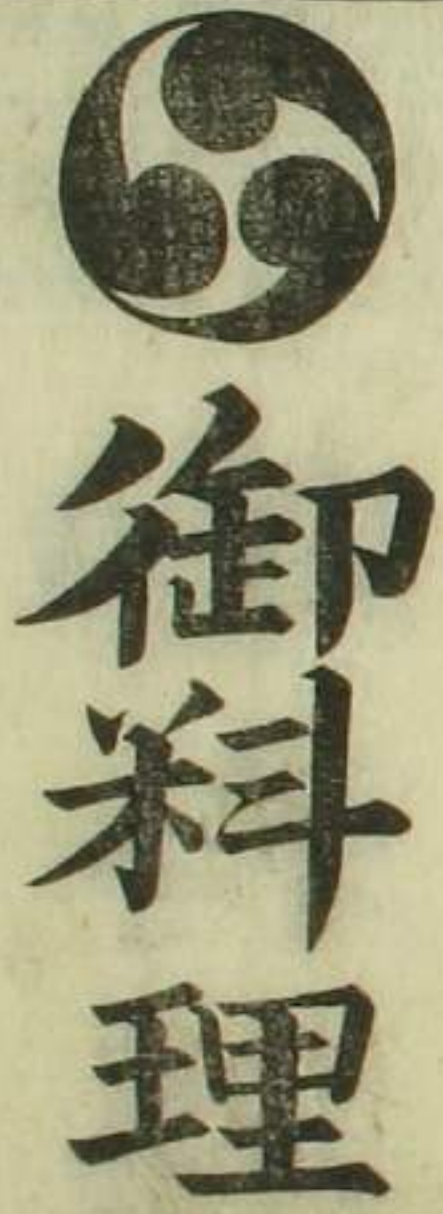 御料理